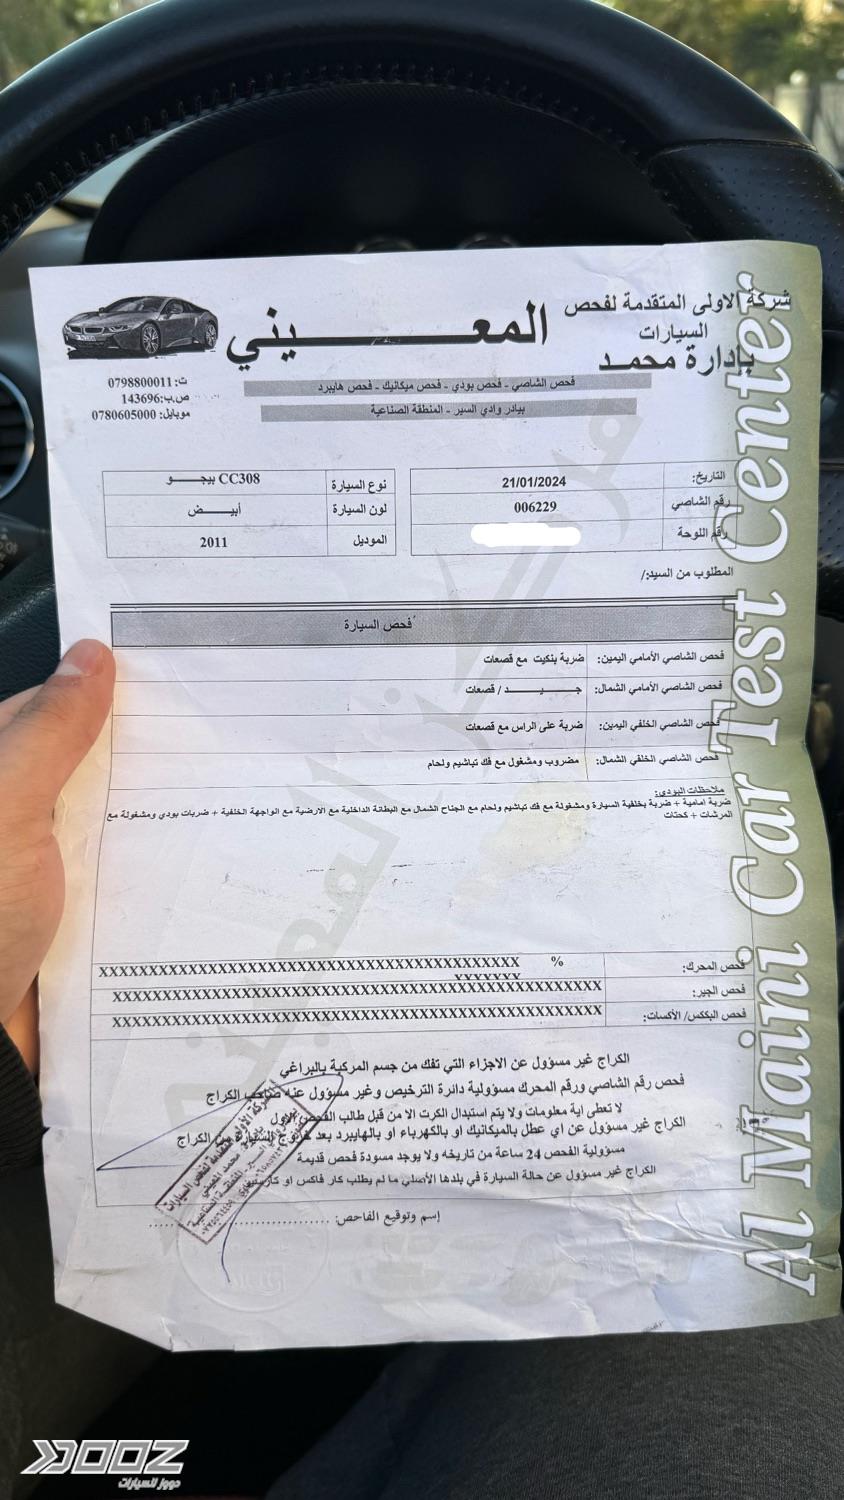 شركة الاولى المتقدمة لفحص
السيارات
بإدارة محمـد
المعـــــــــيني
فحص الشاصي - فحص بودي - فحص ميكانيك - فحص هايبرد
بيادر وادي السير - المنطقة الصناعية
ت: 0798800011
ص.ب:143696
موبايل: 0780605000
التاريخ: 21/01/2024
رقم الشاصي 006229
رقم اللوحة
نوع السيارة CC308 بيجـــو
لون السيارة أبيـــض
الموديل 2011
المطلوب من السيد/:
فحص السيارة
فحص الشاصي الأمامي اليمين: ضربة بنكيت مع قصعات
فحص الشاصي الأمامي الشمال: جـــيـــــد / قصعات
فحص الشاصي الخلفي اليمين: ضربة على الراس مع قصعات
فحص الشاصي الخلفي الشمال: مضروب ومشغول مع فك تباشيم ولحام
ملاحظات البودي:
ضربة امامية + ضربة بخلفية السيارة ومشغولة مع فك تباشيم ولحام مع الجناح الشمال مع البطانة الداخلية مع الارضية مع الواجهة الخلفية + ضربات بودي ومشغولة مع
المرشات + كحتات
فحص المحرك: % XXXXXXXXXXXXXXXXXXXXXXXXXXXXXXXXXXXXXXXXXX
XXXXXXX
فحص الجير: XXXXXXXXXXXXXXXXXXXXXXXXXXXXXXXXXXXXXXXXXXXXXXXXX
فحص البككس/ الأكسات: XXXXXXXXXXXXXXXXXXXXXXXXXXXXXXXXXXXXXXXXXXXXXXXXX
الكراج غير مسؤول عن الاجزاء التي تفك من جسم المركبة بالبراغي
فحص رقم الشاصي ورقم المحرك مسؤولية دائرة الترخيص وغير مسؤول عنه صاحب الكراج
لا تعطى اية معلومات ولا يتم استبدال الكرت الا من قبل طالب الفحص الاول
الكراج غير مسؤول عن اي عطل بالميكانيك او بالكهرباء او بالهايبرد بعد خروج السيارة من الكراج
مسؤولية الفحص 24 ساعة من تاريخه ولا يوجد مسودة فحص قديمة
الكراج غير مسؤول عن حالة السيارة في بلدها الأصلي ما لم يطلب كار فاكس او كارسيتي
إسم وتوقيع الفاحص: ....................
Al Maini Car Test Center
مركز المعيني
DOOZ
دووز للسيارات